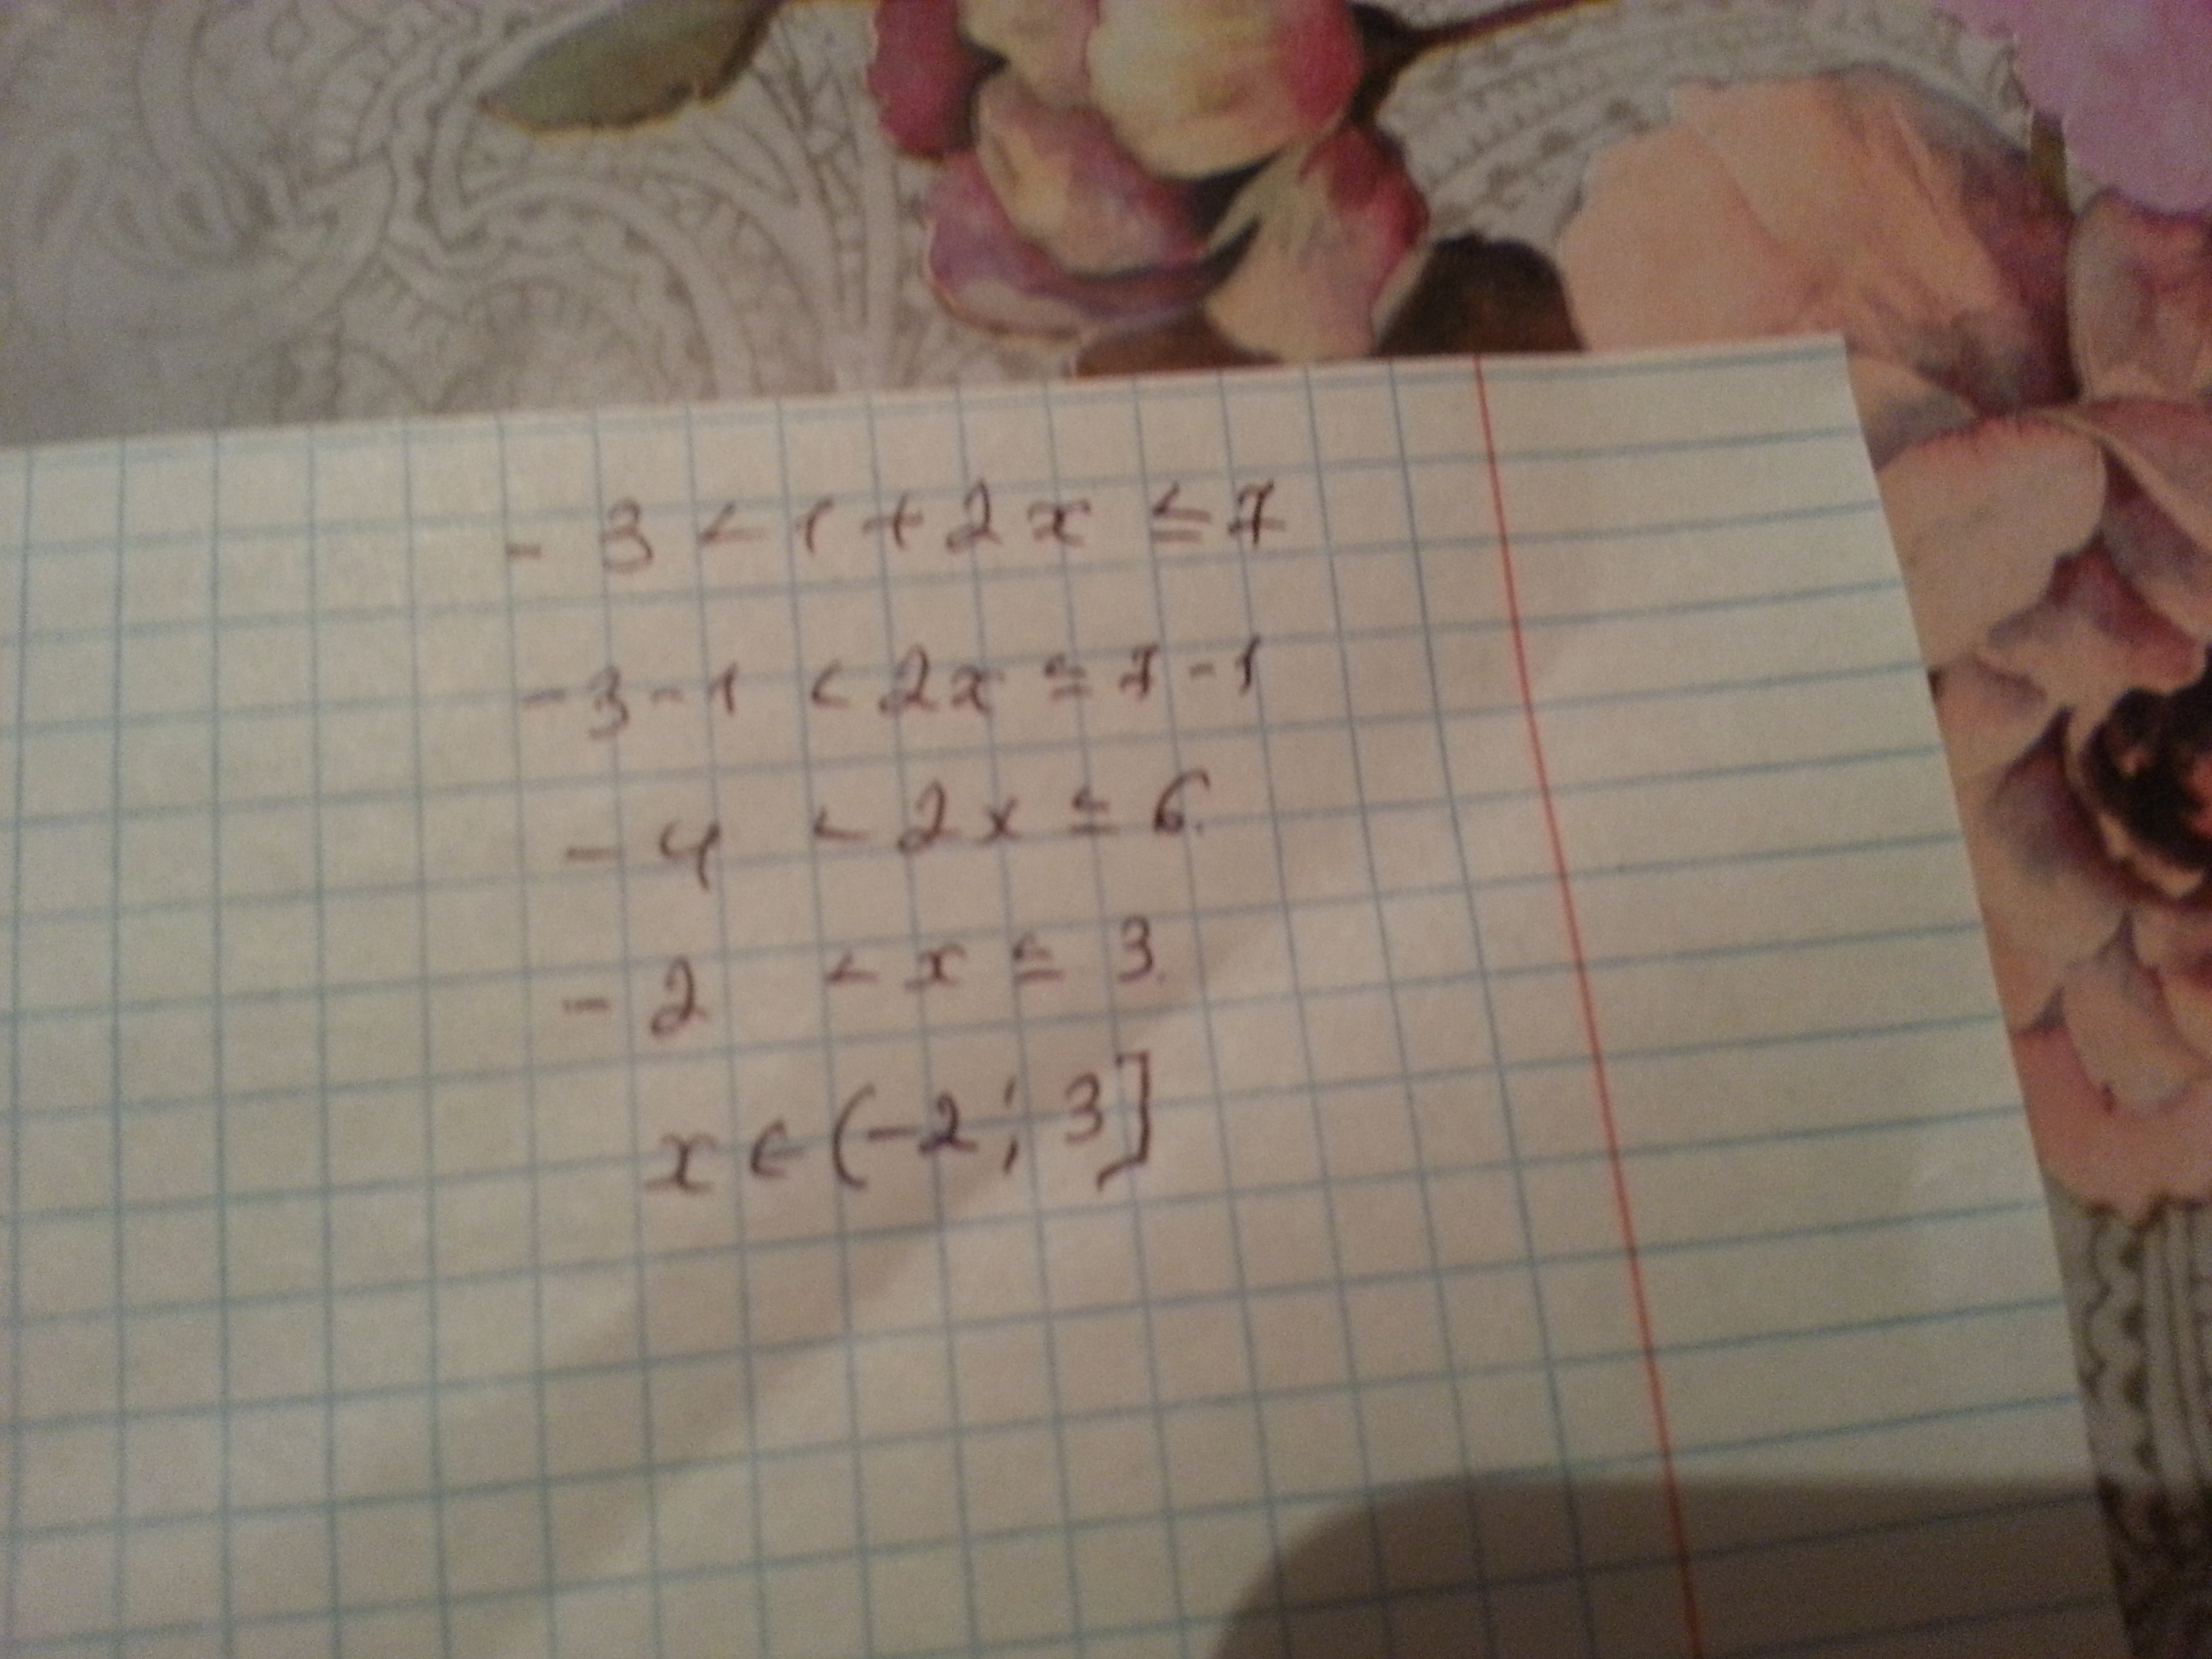 - 3 < 1 + 2x ≤ 7
- 3 - 1 < 2x ≤ 7 - 1
- 4 < 2x ≤ 6.
- 2 < x ≤ 3.
x ∈ (-2; 3]